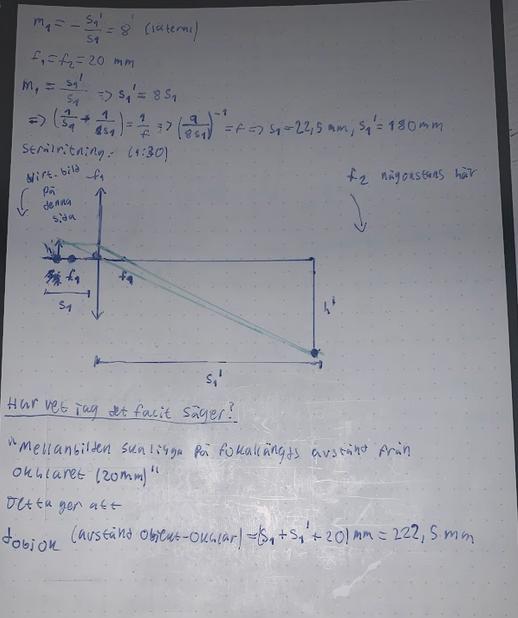 m₁ = - s₁'/s₁ = 8 (lateral)
f₁ = f₂ = 20 mm
m₁ = s₁'/s₁ => s₁' = 8s₁
=> (1/s₁ + 1/8s₁) = 1/f => (9/8s₁)⁻¹ = f => s₁ = 22,5 mm, s₁' = 180 mm
Strålritning: (1:30)
Virt. bild
på
denna
sida
f₁
f₂ någonstans här
h
f₁
f₁
s₁
h'
s₁'
Hur vet jag det facit säger?
"Mellanbilden ska ligga på fokallängds avstånd från
okularet (20mm)"
Detta ger att
d_objok (avstånd objekt-okular) = (s₁ + s₁' + 20) mm = 222,5 mm